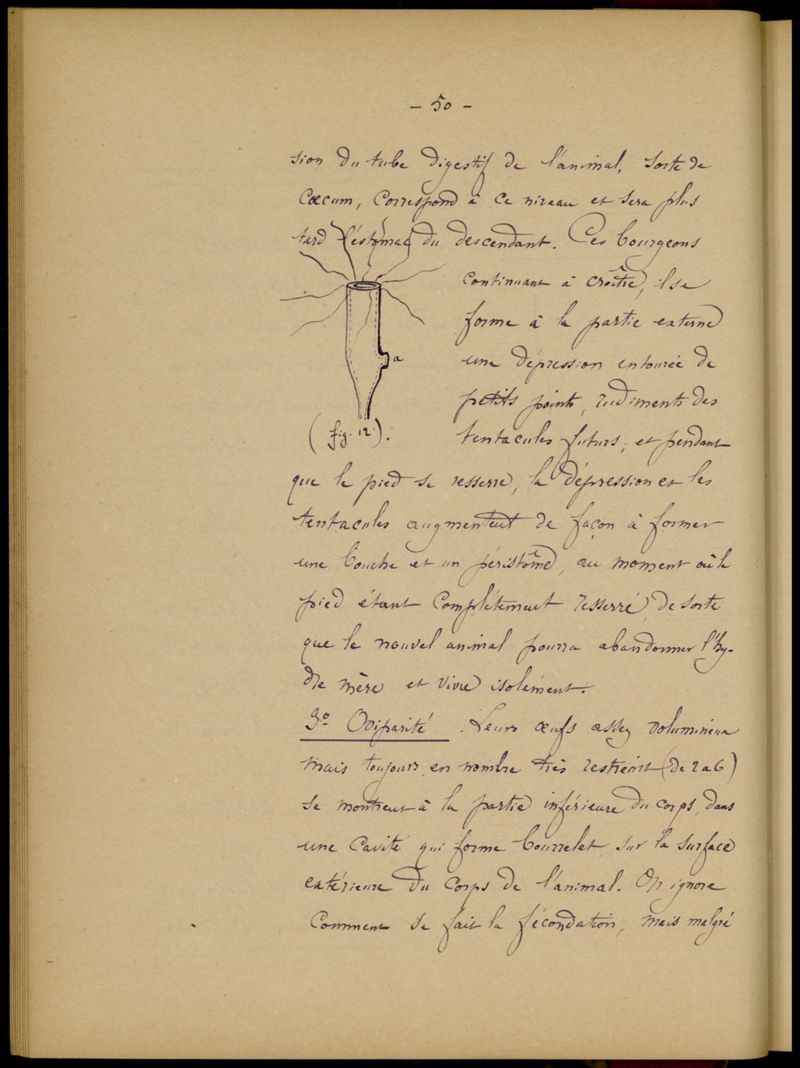 - 50 -
sion du tube digestif de l'animal, sorte de
Cœcum, correspond à ce niveau et sera plus
tard l'estomac du descendant. Ces bourgeons
continuant à croître, il se
forme à la partie externe
une dépression entourée de
petits points, rudiments des
a
(fig. 12.).
tentacules futurs; et pendant
que le pied se resserre, la dépression et les
tentacules augmentent de façon à former
une bouche et un péristôme, au moment où le
pied étant complètement resserré, de sorte
que le nouvel animal pourra abandonner l'hy-
dre mère et vivre isolément.
3º Oviparité. Leurs œufs assez volumineux
mais toujours en nombre très restreint (de 2 à 6)
se montrent à la partie inférieure du corps, dans
une cavité qui forme bourrelet, sur la surface
extérieure du corps de l'animal. On ignore
comment se fait la fécondation, mais malgré